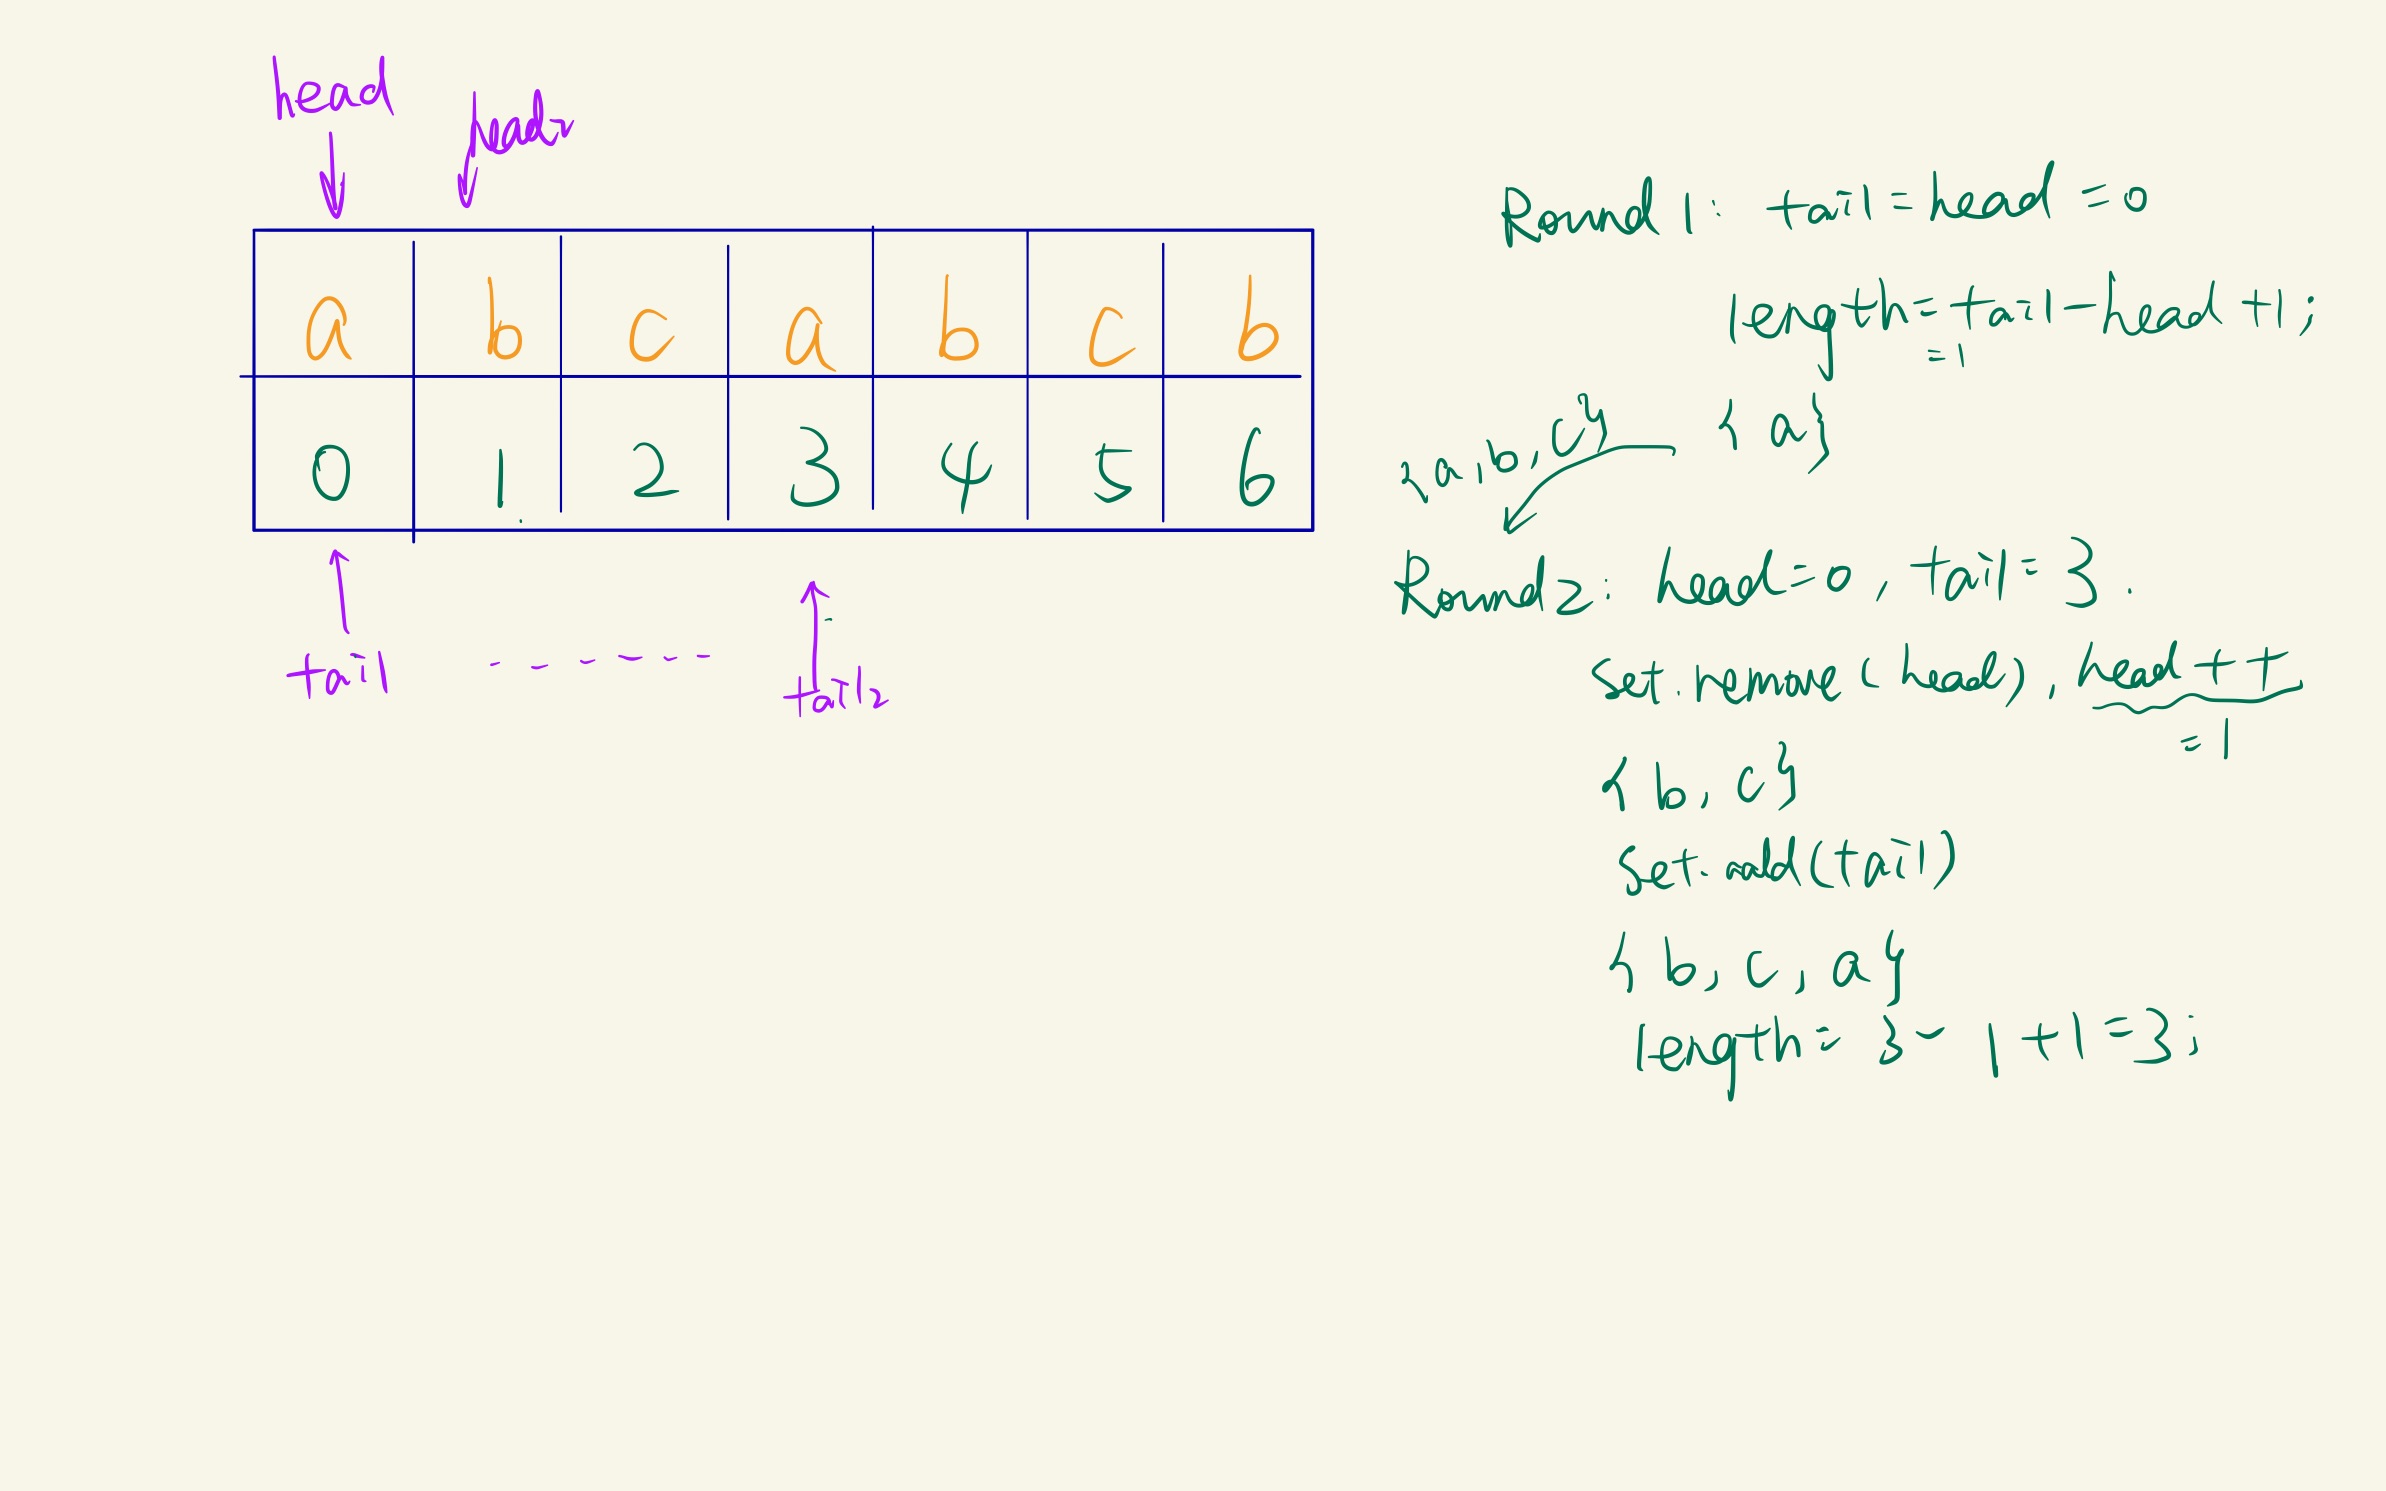 head
head2
a b c a b c b
0 1 2 3 4 5 6
tail - - - - - - tail2
Round 1: tail = head = 0
length = tail - head + 1;
= 1
{ a }
{a, b, c}
Round2: head = 0, tail = 3.
set.remove (head), head ++
= 1
{ b, c }
set.add(tail)
{ b, c, a }
length = 3 - 1 + 1 = 3;